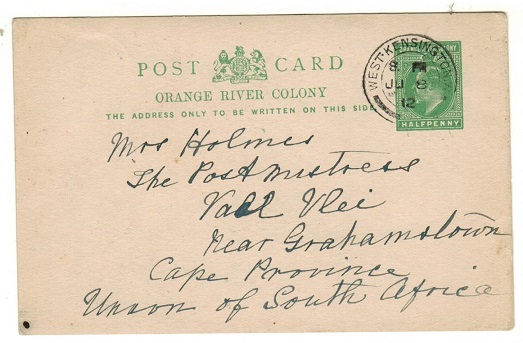 POST CARD
ORANGE RIVER COLONY
THE ADDRESS ONLY TO BE WRITTEN ON THIS SIDE.
WEST KENSINGTON
8 PM
JU 8
12
HALFPENNY
Mrs Holmes
The Postmistress
Vaal Vlei
Near Grahamstown
Cape Province
Union of South Africa